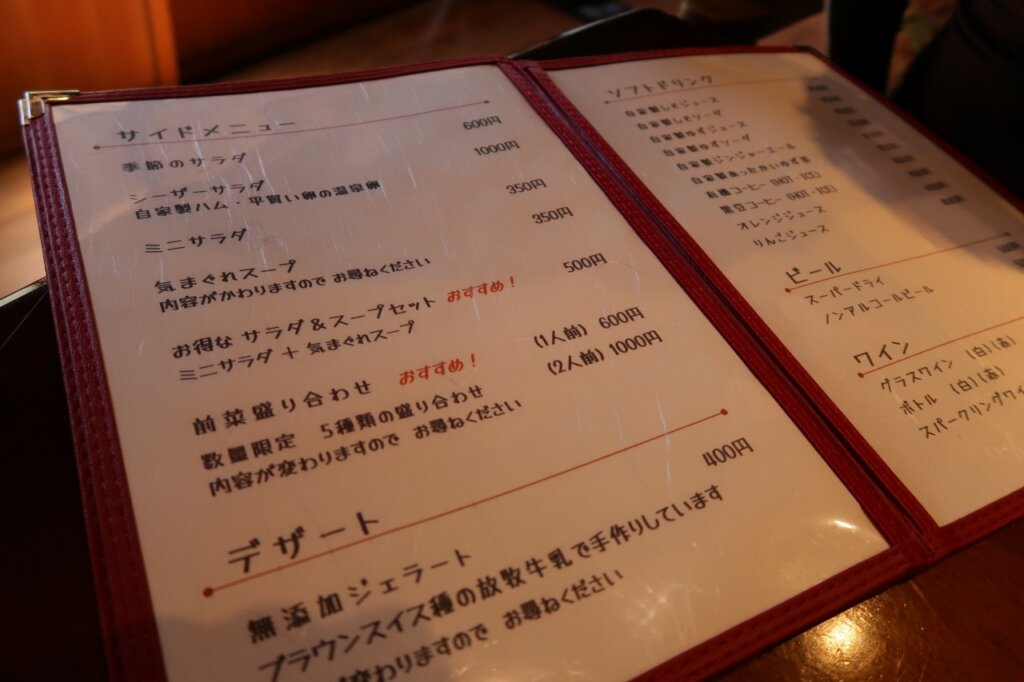 サイドメニュー
季節のサラダ 600円
シーザーサラダ 1000円
自家製ハム・平買い卵の温泉卵
ミニサラダ 350円
気まぐれスープ 350円
内容がかわりますので お尋ねください
お得な サラダ&スープセット おすすめ! 500円
ミニサラダ + 気まぐれスープ
前菜盛り合わせ おすすめ! (1人前) 600円
数量限定 5種類の盛り合わせ (2人前) 1000円
内容が変わりますので お尋ねください
デザート
無添加ジェラート 400円
ブラウンスイス種の放牧牛乳で手作りしています
変わりますので お尋ねください
ソフトドリンク
自家製レモンジュース
自家製レモンソーダ
自家製ゆずジュース
自家製ゆずソーダ
自家製ジンジャーエール
自家製あったかいゆず茶
有機コーヒー (HOT・ICE)
黒豆コーヒー (HOT・ICE)
オレンジジュース
りんごジュース
ビール
スーパードライ
ノンアルコールビール
ワイン
グラスワイン (白)(赤)
ボトル (白)(赤)
スパークリングワイ